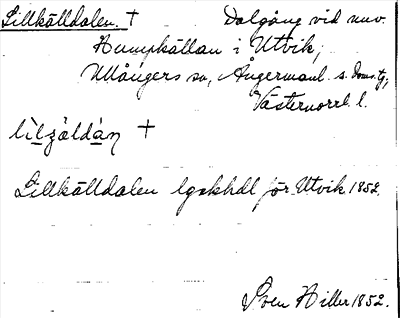 Lillkälldalen. † Dalgång vid nuv.
Humpkällan i Utvik,
Ullångers sn, Ångermanl. s. doms.tg,
Västernorrl. l.
lìlʒäldàn †
Lillkälldalen lgskhdl för Utvik 1852.
Sven Hiller 1852.